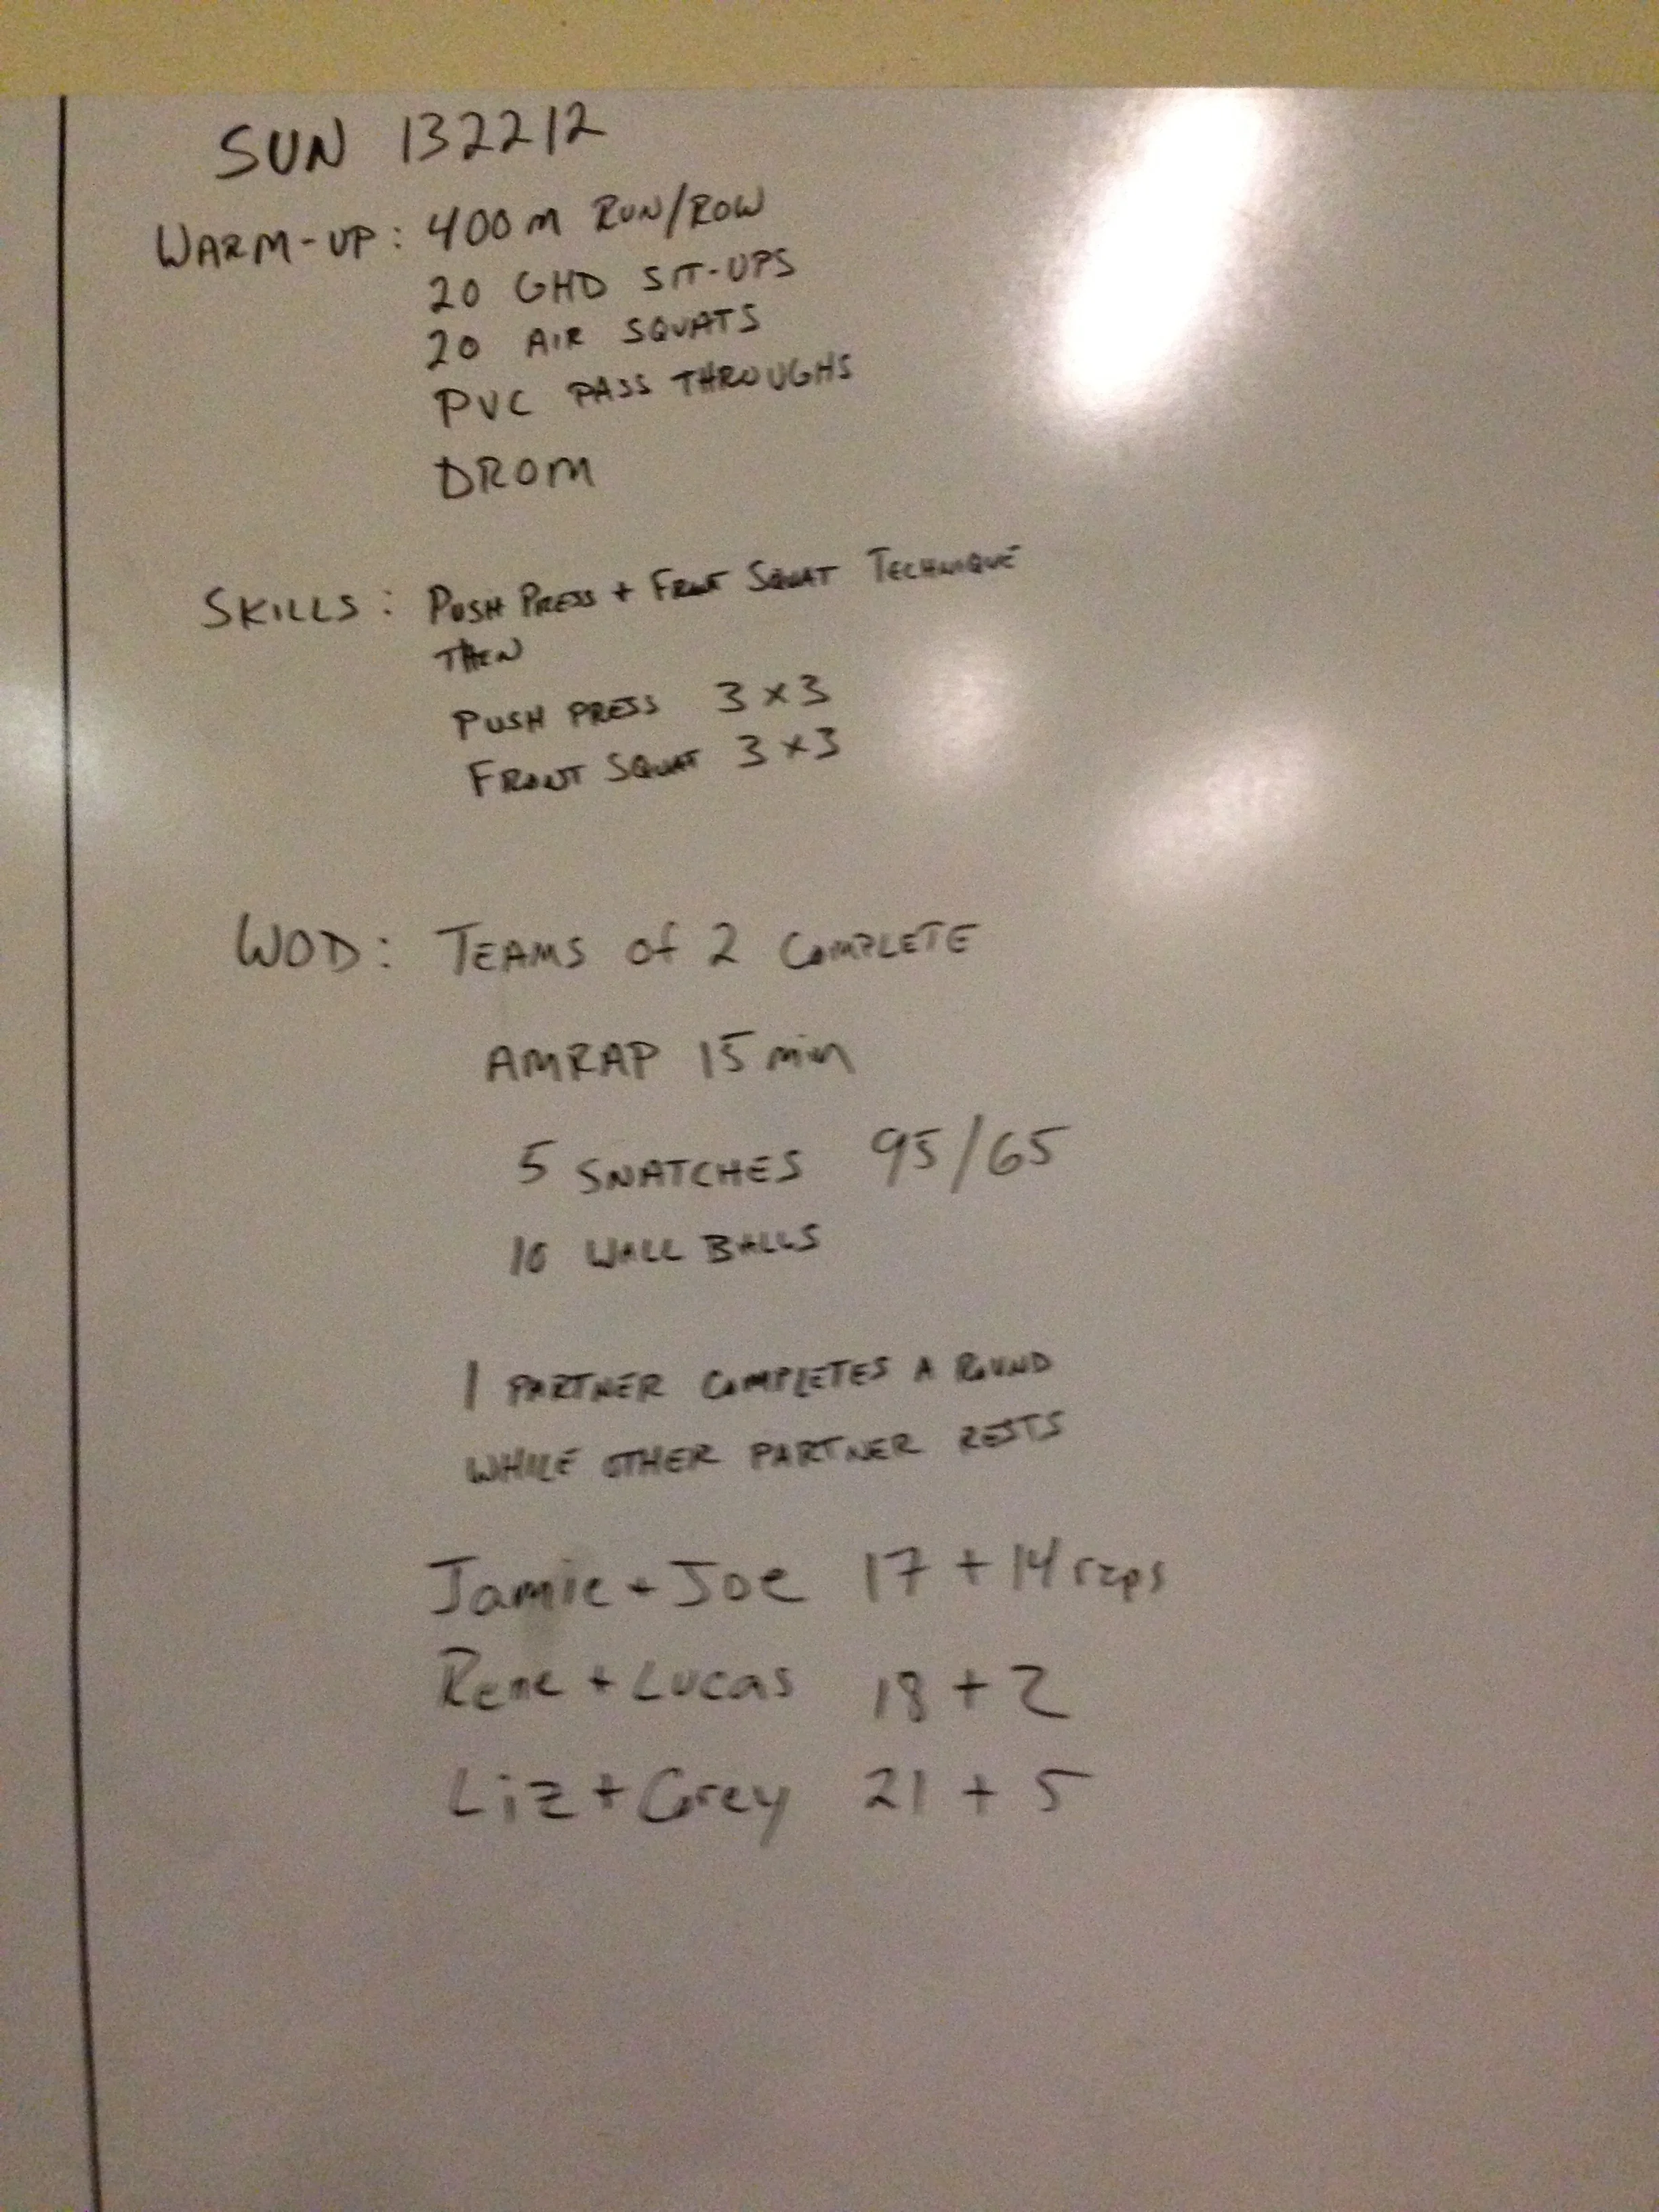 SUN 132212
WARM-UP: 400m RUN/ROW
20 GHD SIT-UPS
20 AIR SQUATS
PVC PASS THROUGHS
DROM
SKILLS: PUSH PRESS + FRONT SQUAT TECHNIQUE
THEN
PUSH PRESS 3x3
FRONT SQUAT 3x3
WOD: TEAMS of 2 COMPLETE
AMRAP 15 min
5 SNATCHES 95/65
10 WALL BALLS
1 PARTNER COMPLETES A ROUND
WHILE OTHER PARTNER RESTS
Jamie + Joe 17 + 14 reps
Rene + Lucas 18 + 2
Liz + Corey 21 + 5